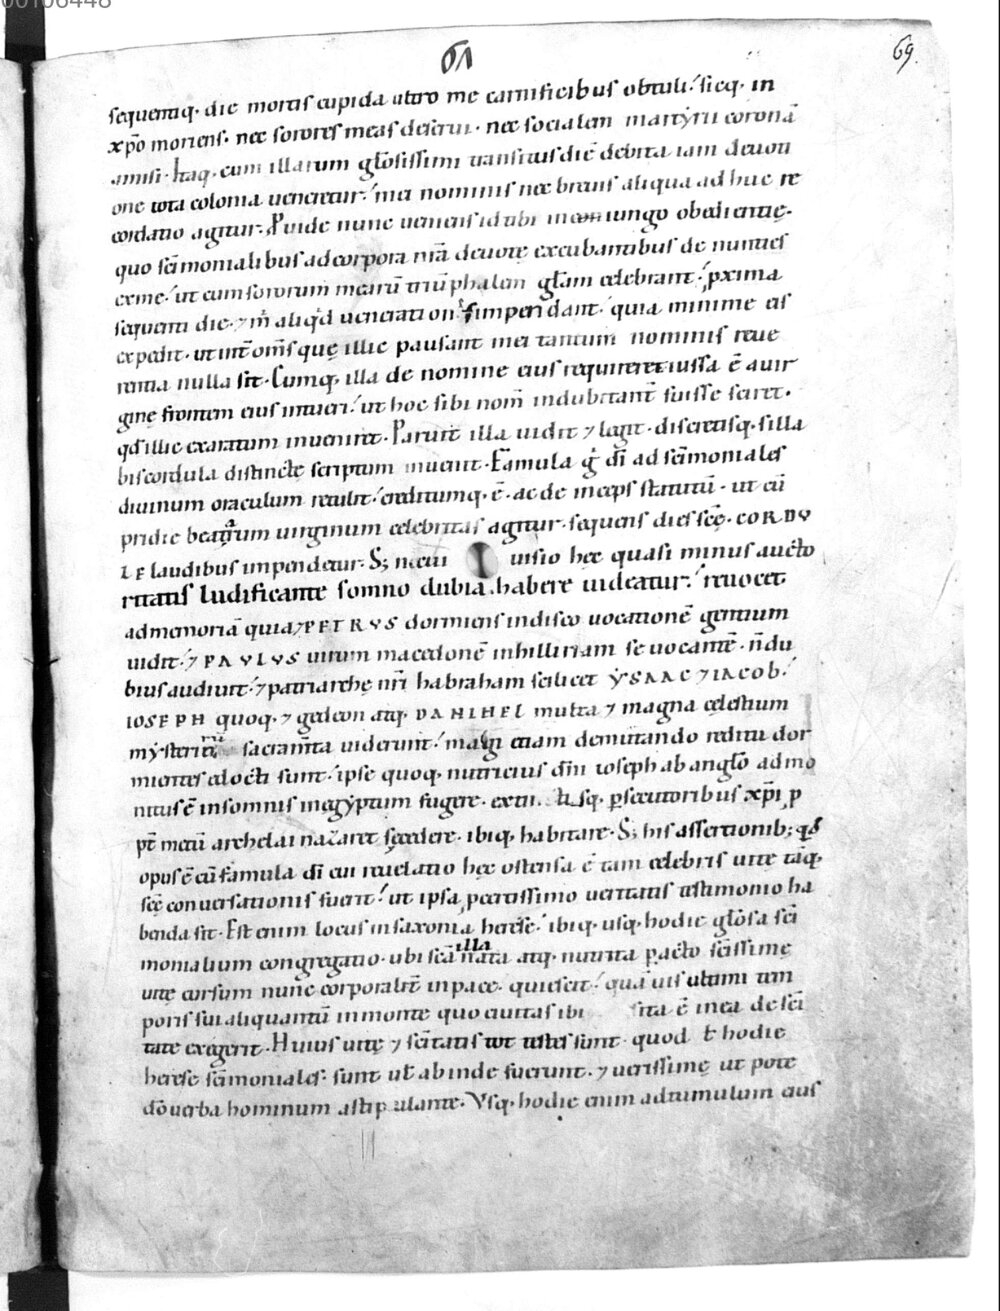 00106448
61
69.
sequentiq· die mortis cupida ultro me carnificibus obtuli· sicq· in
xp̄o moriens· nec sorores meas deserui· nec socialem martẏrii coronā
amisi· Itaq· cum illarum gl̄osissimi transitus diē debita iam deuoti
one tota colonia ueneretur· mei nominis nec breuis aliqua adhuc re
cordatio agitur· Puide nunc ueniens id tibi iniungo obedientię·
quo sc̄imonialibus ad corpora nr̄a deuotę excubantibus de nunties
ex me· ut cum sororum mearū triūphalem gl̄am celebrant· pxima
sequenti die· ⁊ m̄ aliqd̄ uenerationis impendant· quia minime eis
expedit· ut int̄ om̄s quę illic pausant mei tantum nominis reue
rentia nulla sit· Cumq· illa de nomine eius requireret iussa ē a uir
gine frontem eius intueri· ut hoc sibi nom̄ indubitant̄ fuisse sciret·
qd̄ illic exaratum inueniret· Paruit illa uidit ⁊ legit· discretisq· silla
bis cordula distincte scriptum inuenit· Famula g̊ dī ad sc̄imoniales
diuinum oraculum retulit· creditumq· ē· ac de inceps statutū· ut cū
pridie beatarum uirginum celebritas agitur· sequens dies scę· CORDV
LE laudibus impendetur· S; ne cui uisio hec quasi minus aucto
ritatis ludificante somno dubia habere uideatur· reuocet
ad memoriā quia ⁊ PETRVS dormiens in disco uocationē gentium
uidit· ⁊ PAVLVS uirum macedonē in hilliriam se uocantē· n̄ du
bius audiuit· ⁊ patriarche nr̄i habraham scilicet ẎSAAC ⁊ IACOB·
IOSEPH quoq· ⁊ gedeon atq· DANIHEL multa ⁊ magna cęlestium
mẏsteriorum sacram̄ta uiderunt· magi etiam demutando reditu dor
mientes edocti sunt· ipse quoq· nutricius dn̄i ioseph ab angl̄o admo
nitus ē in somnis in egẏptum fugere· sq· psecutoribus xp̄i, p
pt̄ metū archelai nazaret secedere· ibiq· habitare· S; his assertionib; qd̄
opus ē cū famula dī cui reuelatio hęc ostensa ē tam celebris uitę tāq·
scę conuersationis fuerit· ut ipsa pcertissimo ueritatis testimonio ha
benda sit· Est enim locus in saxonia herese· ibiq· usq· hodie gl̄osa sc̄i
monialium congregatio· ubi scā illa nata atq· nutrita pacto sc̄issimę
uitę cursum nunc corporalit̄ in pace quiescit· quā uis ultimi tem
poris sui aliquantū in monte quo ciuitas ibi sita ē in ea de sc̄i
tate exegerit· Huius uitę ⁊ sc̄itatis tot testes sunt· quod t̄ hodie
herese sc̄imoniales· sunt ut̄ ab inde fuerunt· ⁊ uerissimę ut pote
dō uerba hominum astipulante· Vsq· hodie enim ad tumulum eius